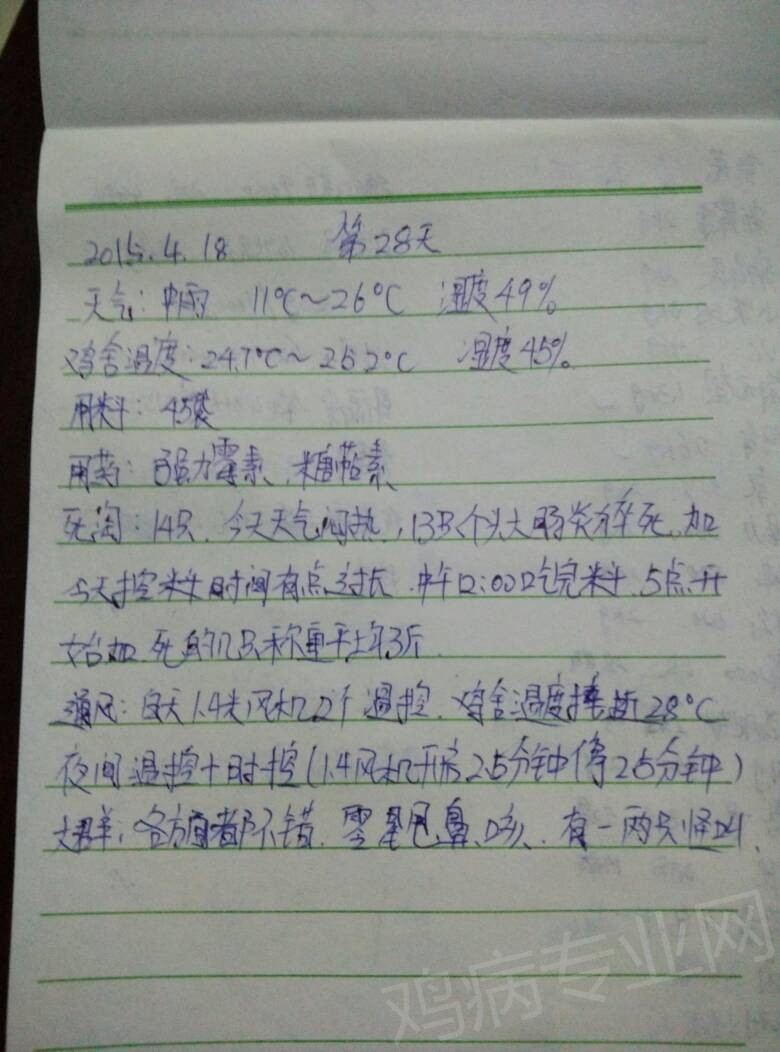 2015.4.18 第28天
天气：中雨 11℃～26℃ 湿度49%
鸡舍温度：24.7℃～25.2℃ 湿度45%
用料：45袋
用药：强力霉素、糖萜素
死淘：14只，今天天气闷热，13只个头大肠炎猝死，加
今天控料时间有点过长，中午12:00吃完料，5点开
始加，死的几只称重平均3斤
通风：白天1.4米风机2个温控，鸡舍温度 28℃
夜间温控+时控（1.4风机开 2.5分钟停2.5分钟）
大群：各方面都不错，零星甩鼻、咳、有一两只怪叫、
鸡病专业网